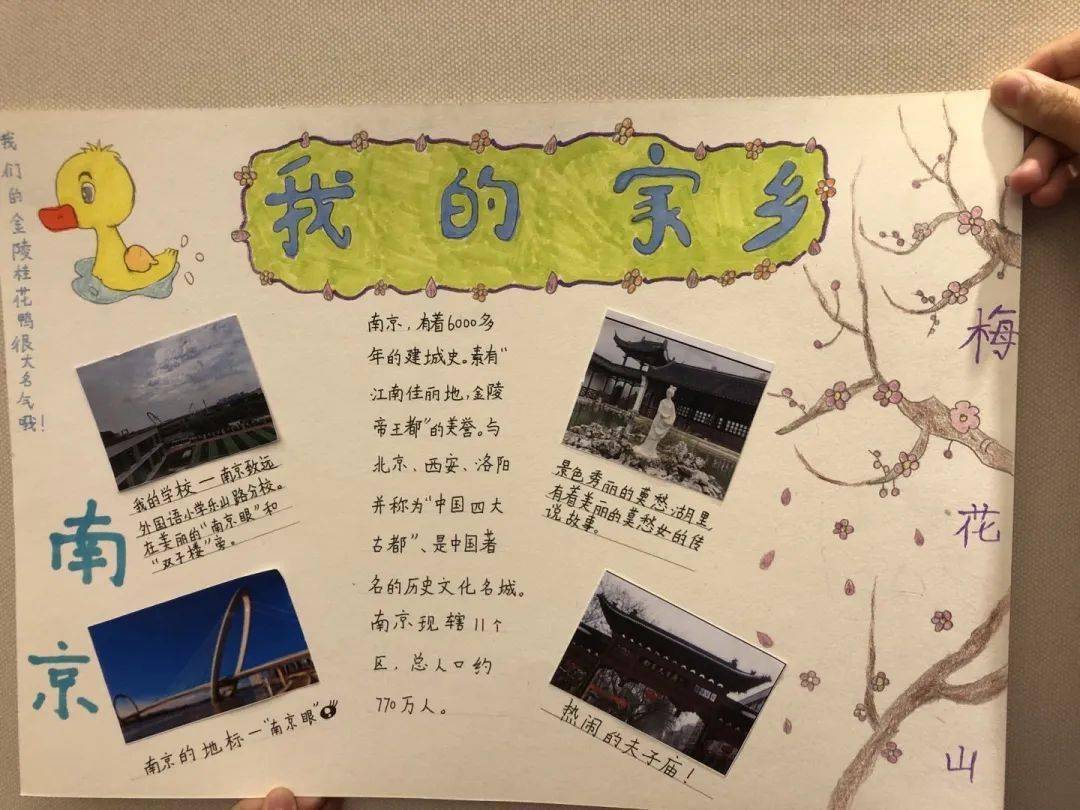 我的家乡
我们的金陵桂花鸭很大名气哦!
南京
南京,有着6000多
年的建城史。素有“
江南佳丽地,金陵
帝王都”的美誉。与
北京、西安、洛阳
并称为“中国四大
古都”、是中国著
名的历史文化名城。
南京现辖11个
区,总人口约
770万人。
我的学校—南京致远
外国语小学乐山路分校。
在美丽的“南京眼”和
“双子楼”旁。
南京的地标—“南京眼”
景色秀丽的莫愁湖里,
有着美丽的莫愁女的传
说故事。
热闹的夫子庙!
梅花山